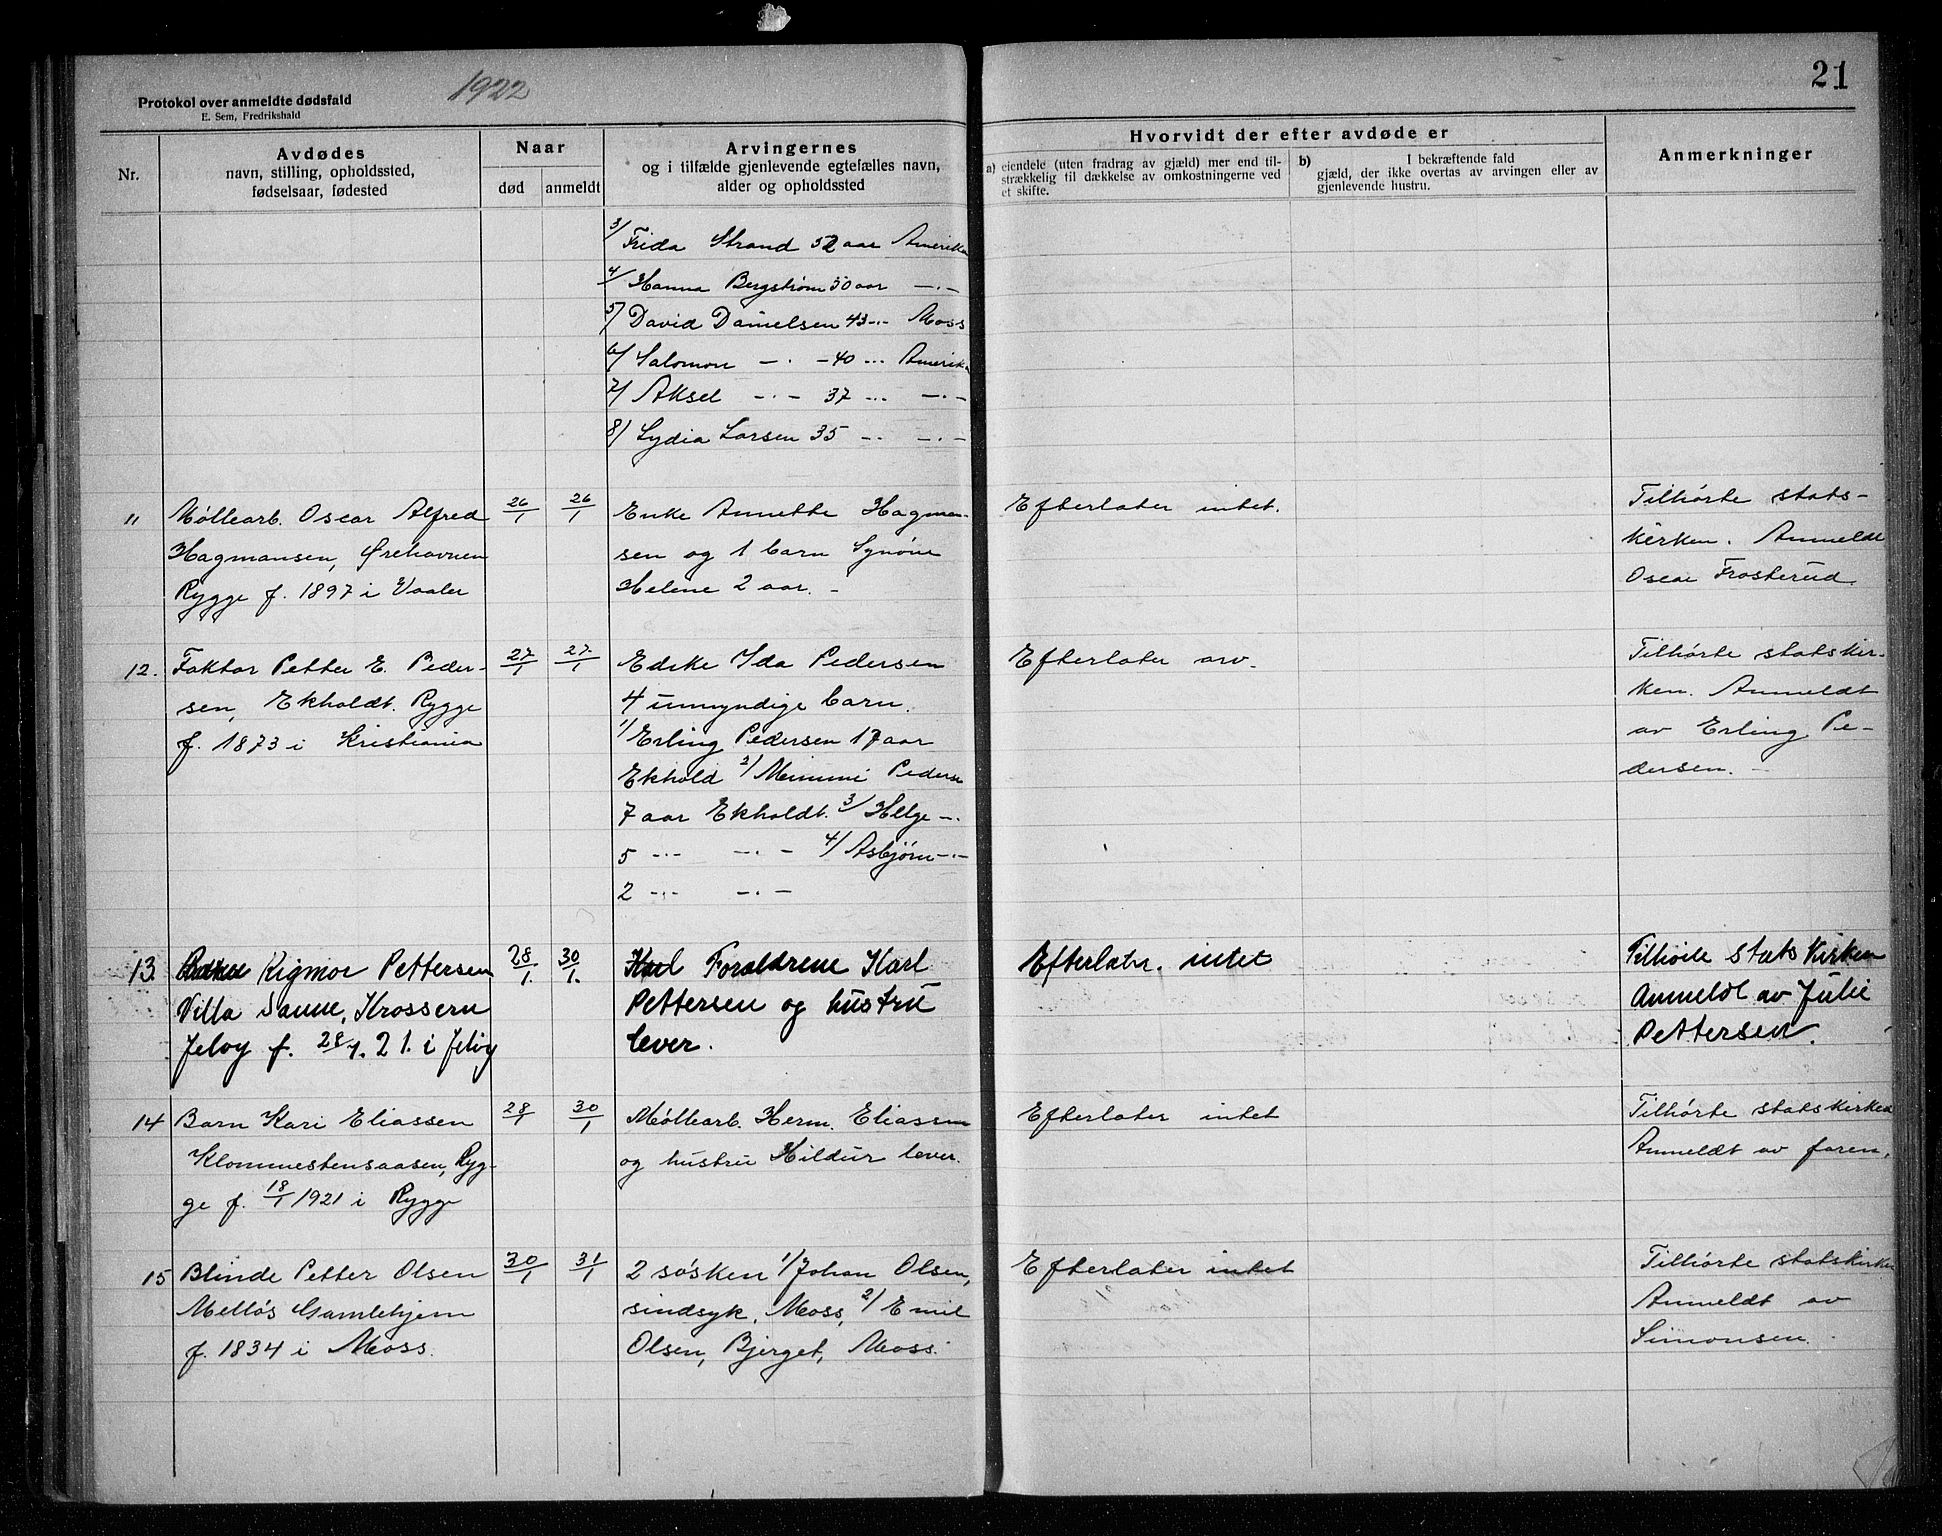 1922
21
Protokol over anmeldte dødsfald
E. Sem, Fredrikshald
Nr.
Avdødes
navn, stilling, opholdssted,
fødselsaar, fødested
Naar
død
anmeldt
Arvingernes
og i tilfælde gjenlevende egtefælles navn,
alder og opholdssted
Hvorvidt der efter avdøde er
a) eiendele (uten fradrag av gjæld) mer end til-
strækkelig til dækkelse av omkostningerne ved
et skifte.
b) I bekræftende fald
gjæld, der ikke overtas av arvingen eller av
gjenlevende hustru.
Anmerkninger
3/ Frida Strand 52 aar Amerika
4/ Hanna Bergstrøm 50 aar -.-
5/ David Danielsen 43 -.- Moss
6/ Salomon -.- 40 -.- Amerika
7/ Aksel -.- 37 -.- -.-
8/ Lydia Larsen 35 -.- -.-
11 Møllearb. Oscar Alfred
Hagmansen, Ørehavnen
Rygge f. 1897 i Vaaler
26/1
26/1
Enke Annette Hagman-
sen og 1 barn Synøve
Helene 2 aar. -
Efterlater intet.
Tilhørte stats-
kirken. Anmeldt
Oscar Frosterud.
12. Faktor Petter E. Peder-
sen, Ekholdt. Rygge
f. 1873 i Kristiania
27/1
27/1
Enke Ida Pedersen
4 umyndige barn.
1/ Erling Pedersen 17 aar
Ekhold 2/ Mimmi Pedersen
7 aar Ekholdt. 3/ Helge -.-
5 -.- -.- 4/ Asbjørn -.-
2 -.- -.-
Efterlater arv.
Tilhørte statskir-
ken. Anmeldt
av Erling Pe-
dersen. -
13 Rigmor Pettersen
Villa Sanne, Krossern
Jeløy f. 28/1. 21. i Jeløy
28/1.
30/1.
Karl Foraldrene Karl
Pettersen og hustru
lever.
Efterlater. intet
Tilhørte statskirken
Anmeldt av Julie
Pettersen.
14 Barn Kari Eliassen
Klommestensaasen, Ryg-
ge f. 18/1 1921 i Rygge
28/1
30/1
Møllearb. Herm. Eliassen
og hustru Hildur lever.
Efterlater intet
Tilhørte statskirken
Anmeldt av faren.
15 Blinde Petter Olsen
Melløs Gamlehjem
f. 1834 i Moss.
30/1
31/1
2 søsken 1/ Johan Olsen,
sindsyk, Moss, 2/ Emil
Olsen, Bjerget, Moss.
Efterlater intet
Tilhørte statskirken
Anmeldt av
Simonsen.